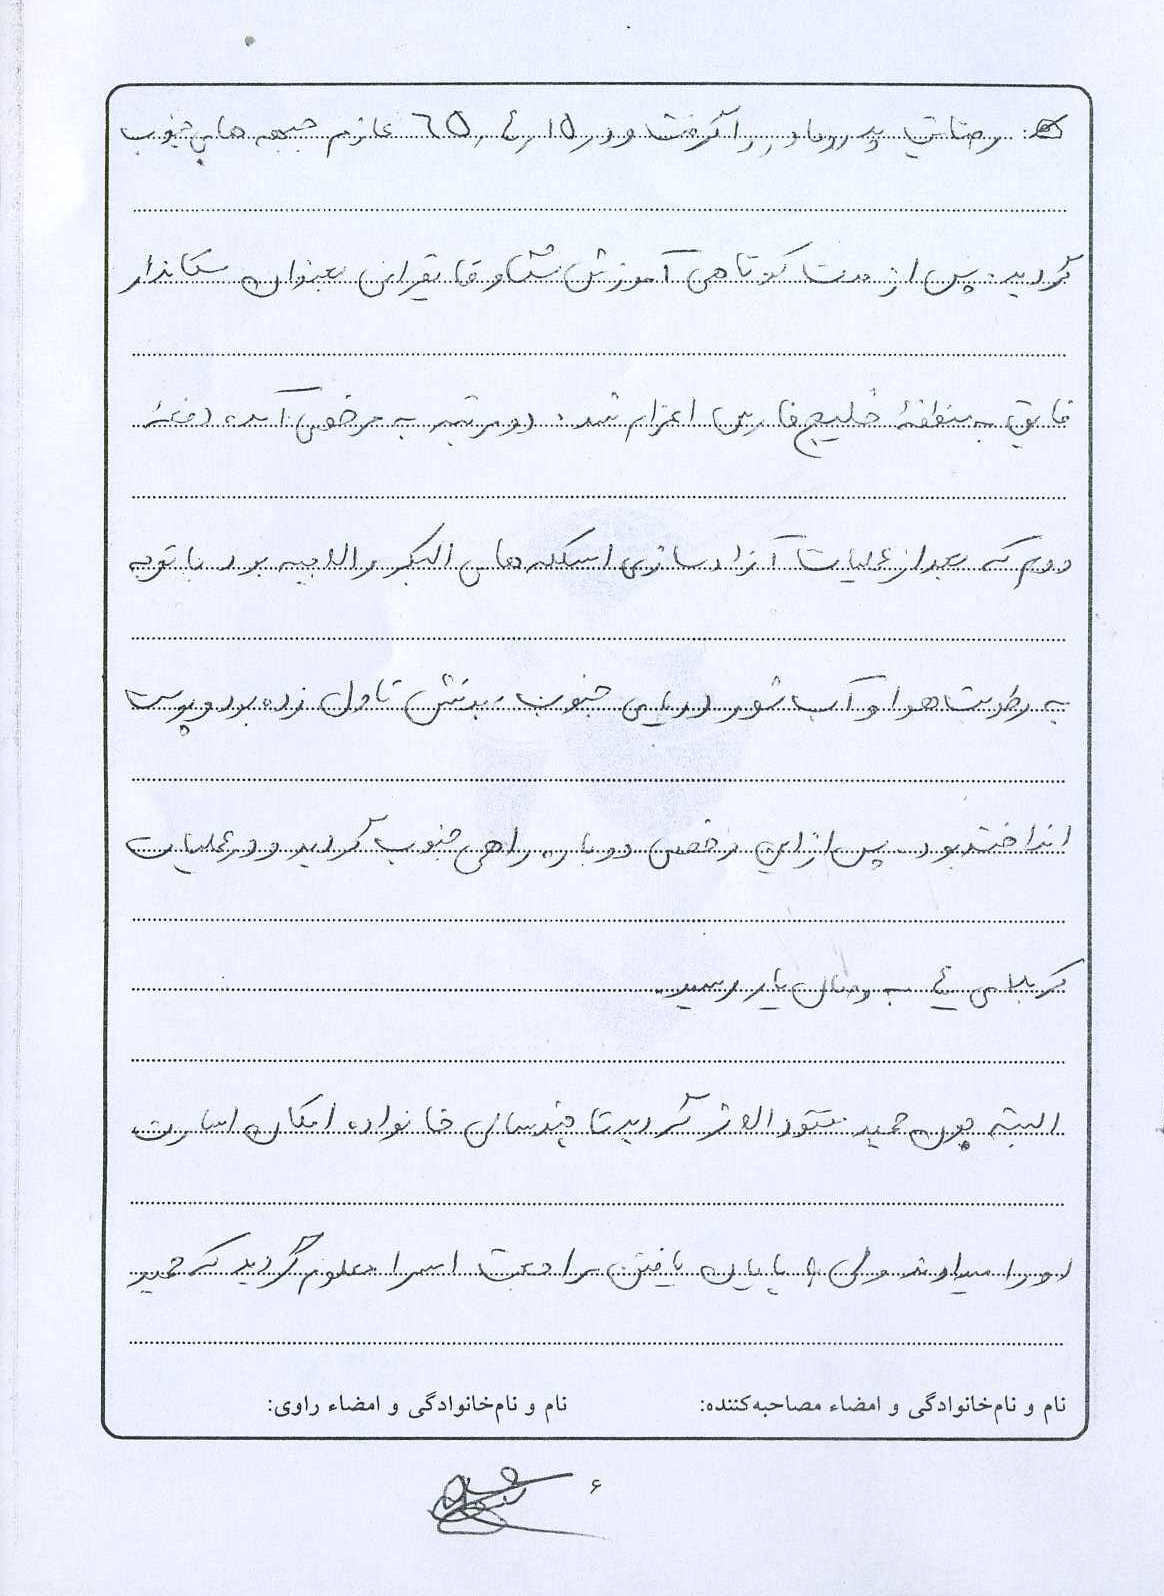 رضایت پدر و مادر را گرفت و در ۱۵ر۴ر۶۵ عازم جبهه های جنوب
گردید. پس از مدت کوتاهی آموزش شنا و قایقرانی بعنوان سکاندار
قایق به منطقهٔ خلیج فارس اعزام شد. دو مرتبه به مرخصی آمد، دفعهٔ
دوم که بعد از عملیات آزاد سازی اسکله های البکر و الامیه بود با توجه
به رطوبت هوا و آب شور دریای جنوب، بدنش تاول زده بود و پوست
انداخته بود. پس از این مرخصی دوباره راهی جنوب گردید و در عملیات
کربلای ۴ به وصال یار رسید.
البته چون حمید مفقود الاثر گردید تا چند سال خانواده امکان اسارت
او را میدادند ولی با پایان یافتن مراجعت اسرا معلوم گردید که حمید
نام و نام‌خانوادگی و امضاء مصاحبه‌کننده: نام و نام‌خانوادگی و امضاء راوی:
۶